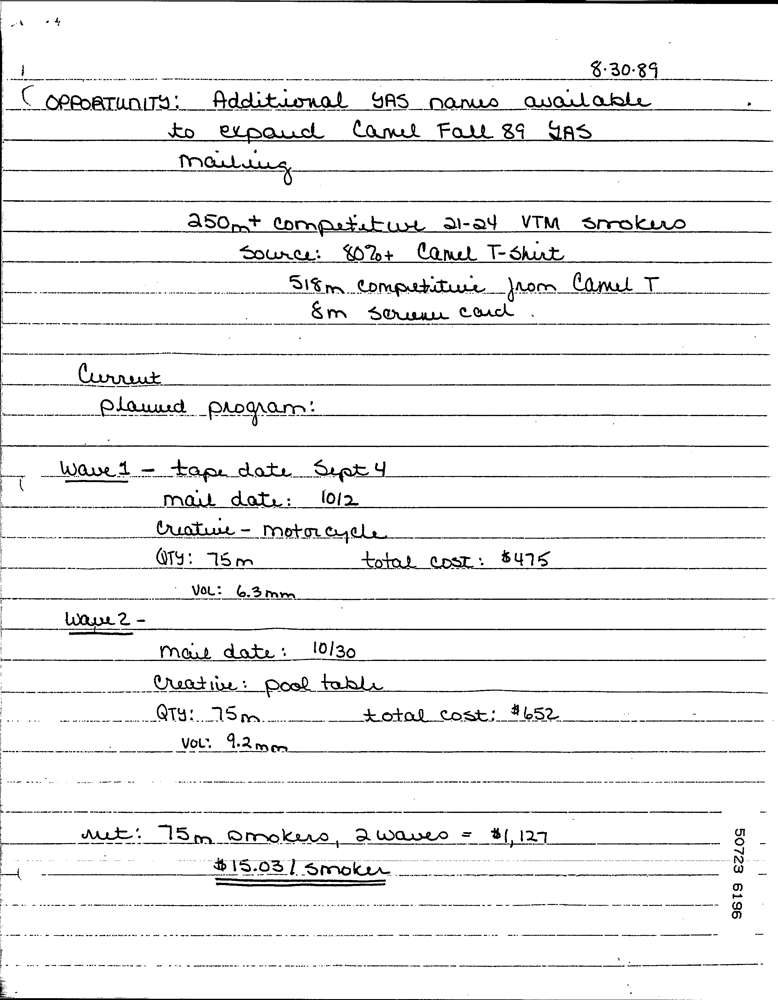 8·30·89
OPPORTUNITY: Additional YAS names available
to expand Camel Fall 89 YAS
mailing
250m+ competitive 21-24 VTM smokers
Source: 80%+ Camel T-Shirt
518m competitive from Camel T
8m screener card.
Current
planned program:
Wave 1 - tape date Sept 4
mail date: 10/2
Creative - motorcycle
QTY: 75m total cost: $475
VOL: 6.3mm
Wave 2 -
mail date: 10/30
Creative: pool table
QTY: 75m total cost: $652
VOL: 9.2mm
net: 75m smokers, 2 waves = $1,127
$15.03/smoker
50723 6196